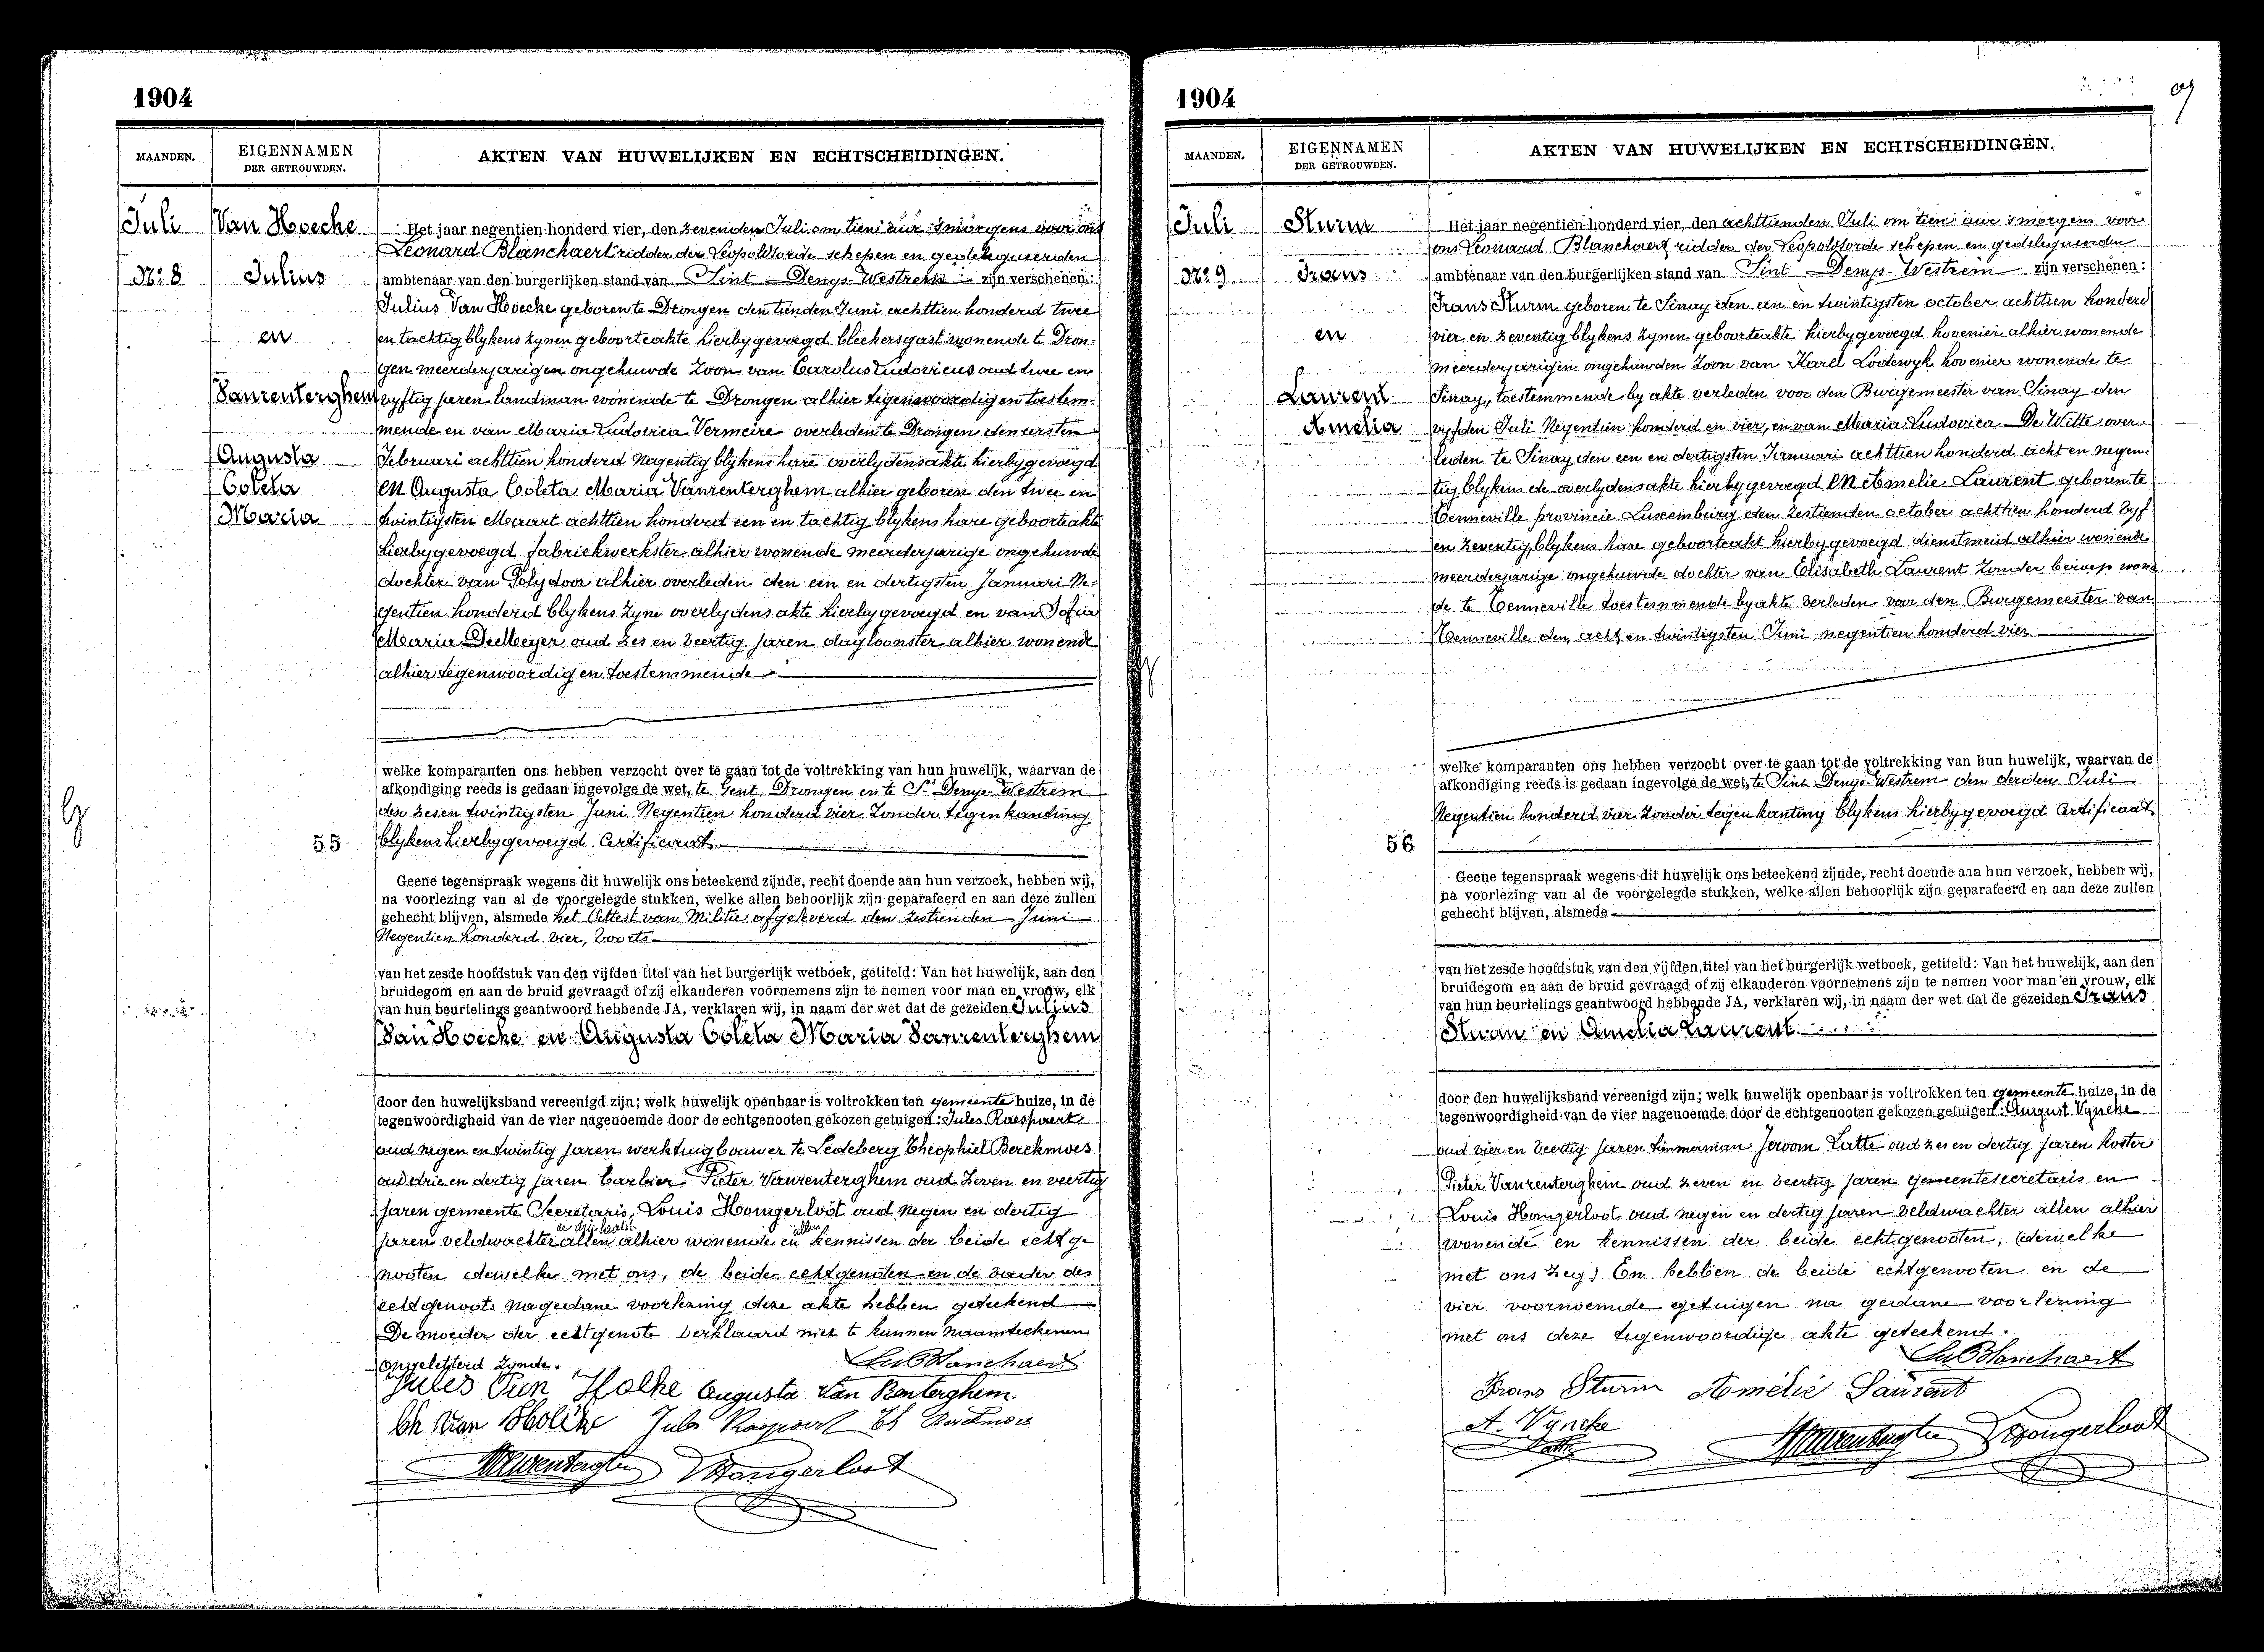 1904
MAANDEN.
EIGENNAMEN
DER GETROUWDEN.
AKTEN VAN HUWELIJKEN EN ECHTSCHEIDINGEN.
Juli
Van Hoecke
No. 8
Julius
en
Vanrenterghem
Augusta
Coleta
Maria
Het jaar negentien honderd vier, den zevenden Juli om tien uur 's morgens voor ons
Leonard Blanchaert ridder der Leopoldsorde schepen en gedelegueerden
ambtenaar van den burgerlijken stand van Sint Denys-Westrem zijn verschenen:
Julius Van Hoecke geboren te Drongen den tienden Juni achttien honderd twee
en tachtig blykens zynen geboorteakte hierbygevoegd bleekersgast wonende te Dron:
gen meerderjarigen ongehuwde zoon van Carolus Ludovicus oud twee en
vyftig jaren landman wonende te Drongen alhier tegenwoordig en toestem-
mende en van Maria Ludovica Vermeire overleden te Drongen den eersten
Februari achttien honderd negentig blykens hare overlydensakte hierbygevoegd
en Augusta Coleta Maria Vanrenterghem alhier geboren den twee en
twintigsten Maart achttien honderd een en tachtig blykens hare geboorteakte
hierbygevoegd fabriekwerkster alhier wonende meerderjarige ongehuwde
dochter van Polydoor alhier overleden den een en dertigsten Januari Ne-
gentien honderd blykens zyne overlydensakte hierbygevoegd en van Sofia
Maria De Meyer oud zes en veertig jaren dagloonster alhier wonende
alhier tegenwoordig en toestemmende
welke komparanten ons hebben verzocht over te gaan tot de voltrekking van hun huwelijk, waarvan de
afkondiging reeds is gedaan ingevolge de wet, te Gent Drongen en te St Denys-Westrem
den zes en twintigsten Juni Negentien honderd vier zonder tegenkanting
55
blykens hierbygevoegd Certificaat.
Geene tegenspraak wegens dit huwelijk ons beteekend zijnde, recht doende aan hun verzoek, hebben wij,
na voorlezing van al de voorgelegde stukken, welke allen behoorlijk zijn geparafeerd en aan deze zullen
gehecht blijven, alsmede het Attest van Militie afgeleverd den zestienden Juni
Negentien honderd vier, voorts
van het zesde hoofdstuk van den vijfden titel van het burgerlijk wetboek, getiteld: Van het huwelijk, aan den
bruidegom en aan de bruid gevraagd of zij elkanderen voornemens zijn te nemen voor man en vrouw, elk
van hun beurtelings geantwoord hebbende JA, verklaren wij, in naam der wet dat de gezeiden Julius
Van Hoecke en Augusta Coleta Maria Vanrenterghem
door den huwelijksband vereenigd zijn; welk huwelijk openbaar is voltrokken ten gemeente huize, in de
tegenwoordigheid van de vier nagenoemde door de echtgenooten gekozen getuigen: Jules Raespoert
oud negen en twintig jaren werktuigbouwer te Ledeberg Theophiel Berckmoes
oud drie en dertig jaren barbier Pieter Vanrenterghem oud zeven en veertig
jaren gemeente Secretaris, Louis Hongerloot oud negen en dertig
de drij laatste allen
jaren veldwachter allen alhier wonende en kennissen der beide echtge
nooten dewelke met ons, de beide echtgenoten en de vader des
echtgenoots na gedane voorlezing deze akte hebben geteekend
De moeder der echtgenote verklaard niet te kunnen naamteekenen
ongeletterd zynde.
Jules Van Hoike Augusta Van Renterghem.
Hongerloot
1904
MAANDEN.
EIGENNAMEN
DER GETROUWDEN.
AKTEN VAN HUWELIJKEN EN ECHTSCHEIDINGEN.
Juli
Sturm
No. 9
Frans
en
Laurent
Amelia
Het jaar negentien honderd vier, den achttienden Juli om tien uur 's morgens voor
ons Leonard Blanchaert ridder der Leopoldsorde schepen en gedelegueerden
ambtenaar van den burgerlijken stand van Sint Denys-Westrem zijn verschenen:
Frans Sturm geboren te Sinay den een en twintigsten october achttien honderd
vier en zeventig blykens zynen geboorteakte hierbygevoegd hovenier alhier wonende
meerderjarigen ongehuwden zoon van Karel Lodewyk hovenier wonende te
Sinay, toestemmende by akte verleden voor den Burgemeester van Sinay den
vyfden Juli Negentien honderd en vier, en van Maria Ludovica De Witte over-
leden te Sinay den een en dertigsten Januari achttien honderd acht en negen-
tig blykens de overlydensakte hierbygevoegd en Amelie Laurent geboren te
Tenneville provincie Luxemburg den zestienden october achttien honderd vyf
en zeventig, blykens hare geboorteakt hierbygevoegd dienstmeid alhier wonende
meerderjarige ongehuwde dochter van Elisabeth Laurent zonder beroep wonen
de te Tenneville toestemmende by akte verleden voor den Burgemeester van
Tenneville den acht en twintigsten Juni negentien honderd vier
welke komparanten ons hebben verzocht over te gaan tot de voltrekking van hun huwelijk, waarvan de
afkondiging reeds is gedaan ingevolge de wet, te Sint Denys-Westrem den derden Juli
Negentien honderd vier zonder tegenkanting blykens hierbygevoegd Certificaat
56
Geene tegenspraak wegens dit huwelijk ons beteekend zijnde, recht doende aan hun verzoek, hebben wij,
na voorlezing van al de voorgelegde stukken, welke allen behoorlijk zijn geparafeerd en aan deze zullen
gehecht blijven, alsmede
van het zesde hoofdstuk van den vijfden titel van het burgerlijk wetboek, getiteld: Van het huwelijk, aan den
bruidegom en aan de bruid gevraagd of zij elkanderen voornemens zijn te nemen voor man en vrouw, elk
van hun beurtelings geantwoord hebbende JA, verklaren wij, in naam der wet dat de gezeiden Frans
Sturm en Amelia Laurent
door den huwelijksband vereenigd zijn; welk huwelijk openbaar is voltrokken ten gemeente huize, in de
tegenwoordigheid van de vier nagenoemde door de echtgenooten gekozen getuigen: August Vyncke
oud vier en veertig jaren timmerman Jeroom Latte oud zes en dertig jaren koster
Pieter Vanrenterghem oud zeven en veertig jaren gemeentesecretaris en
Louis Hongerloot oud negen en dertig jaren veldwachter allen alhier
wonende en kennissen der beide echtgenooten, (dewelke
met ons zeg) En hebben de beide echtgenooten en de
vier voornoemde getuigen na gedane voorlezing
met ons deze tegenwoordige akte geteekend.
Frans Sturm Amélie Laurent
A. Vyncke
Hongerloot